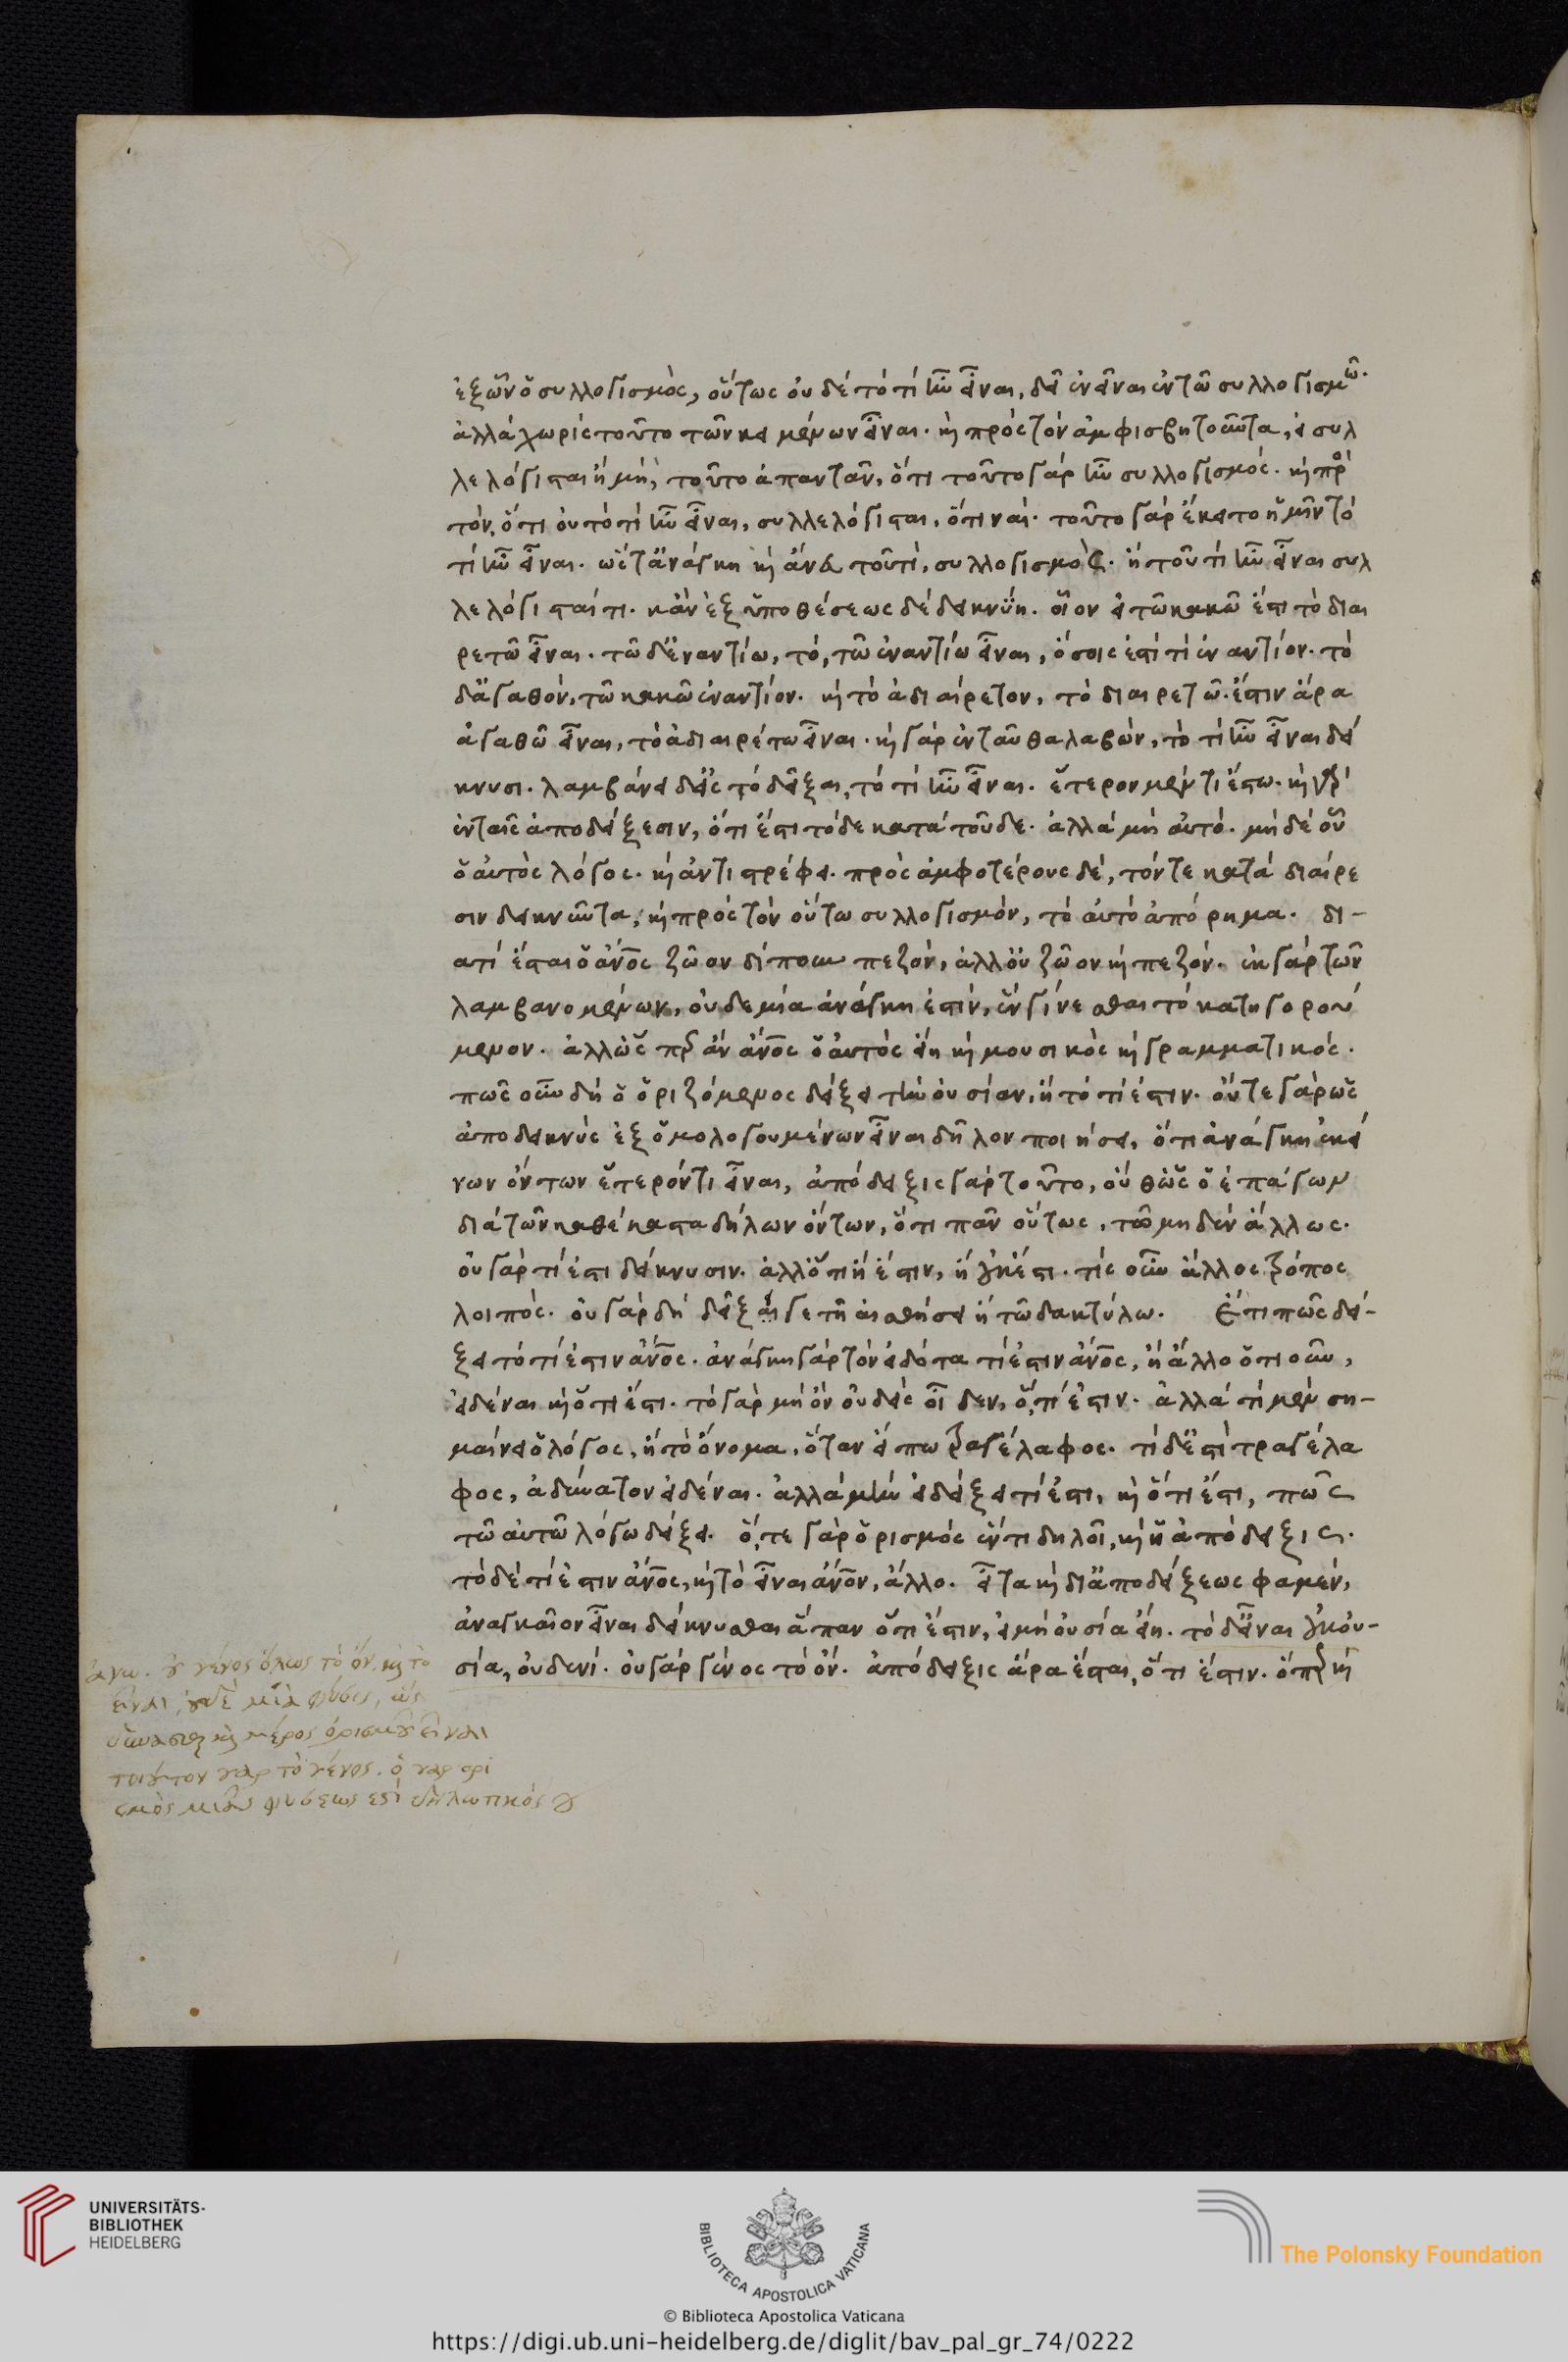 ἐξ ὧν ὁ συλλογισμὸς, οὕτως οὐδὲ τὸ τί ἦν εἶναι, δεῖ ἐνεῖναι ἐν τῶ συλλογισμῶ.
ἀλλὰ χωρὶς τοῦτο τῶν κειμένων εἶναι. ϗ πρὸς τὸν ἀμφισβητοῦντα, εἰ συλ
λελόγισται ἢ μὴ, τοῦτο ἀπαντᾶν, ὅτι τοῦτο γὰρ ἦν συλλογισμός. ϗ πρὸς
τὸν, ὅτι οὐ τὸ τί ἦν εἶναι, συλλελόγισται, ὅτι ναί. τοῦτο γὰρ ἔκειτο ἡμῖν τὸ
τί ἦν εἶναι. ὥστ' ἀνάγκη ϗ ἄνευ τοῦ τί, συλλογισμὸς. ἢ τοῦ τί ἦν εἶναι συλ
λελόγισταί τι. κἂν ἐξ ὑποθέσεως δὲ δεικνύῃ. οἷον εἰ τῶ κακῶ ἐστὶ τὸ διαι
ρετῶ εἶναι. τῶ δ' ἐναντίω, τὸ, τῶ ἐναντίω εἶναι, ὅσοις ἐστί τι ἐναντίον. τὸ
δ' ἀγαθόν, τῶ κακῶ ἐναντίον. ϗ τὸ ἀδιαίρετον, τὸ διαιρετῶ. ἔστιν ἄρα
ἀγαθῶ εἶναι, τὸ ἀδιαιρέτω εἶναι. ϗ γὰρ ἐνταῦθα λαβὼν, τὸ τί ἦν εἶναι δεί
κνυσι. λαμβάνει δ' εἰς τὸ δεῖξαι, τὸ τί ἦν εἶναι. ἕτερον μέντι ἔστω. ϗ γὰρ
ἐν ταῖς ἀποδείξεσιν, ὅτι ἐστὶ τόδε κατὰ τοῦδε. ἀλλὰ μὴ αὐτό. μὴ δὲ οὗ
ὁ αὐτὸς λόγος. ϗ ἀντιστρέφει. πρὸς ἀμφοτέρους δὲ, τόν τε κατὰ διαίρε
σιν δεικνῦντα, ϗ πρὸς τὸν οὕτω συλλογισμόν, τὸ αὐτὸ ἀπόρημα. δι-
ατί ἔσται ὁ ἄνος ζῶον δίπουν πεζόν, ἀλλ' οὐ ζῶον ϗ πεζόν. ἐκ γὰρ τῶν
λαμβανομένων, οὐδεμία ἀνάγκη ἐστὶν, ἓν γίνεσθαι τὸ κατηγορού
μενον. ἀλλ' ὥσπερ ἂν ἄνος ὁ αὐτὸς εἴη ϗ μουσικὸς ϗ γραμματικός.
πῶς οὖν δὴ ὁ ὁριζόμενος δείξει τὴν οὐσίαν, ἢ τὸ τί ἐστιν. οὔτε γὰρ ὡς
ἀποδεικνὺς ἐξ ὁμολογουμένων εἶναι δῆλον ποιήσει, ὅτι ἀνάγκη ἐκεί
νων ὄντων ἕτερόν τι εἶναι, ἀπόδειξις γὰρ τοῦτο, οὔθ' ὡς ὁ ἐπάγων
διὰ τῶν καθέκαστα δήλων ὄντων, ὅτι πᾶν οὕτως, τῶ μηδὲν ἄλλως.
οὐ γὰρ τί ἐστι δείκνυσιν. ἀλλ' ὅτι ἢ ἐστιν, ἢ οὐκ ἔστι. τίς οὖν ἄλλος τρόπος
λοιπός. οὐ γὰρ δὴ δείξει γε τῆ αἰσθήσει ἢ τῶ δακτύλω. Ἔτι πῶς δεί-
ξει τὸ τί ἐστιν ἄνος. ἀνάγκη γὰρ τὸν εἰδότα τί ἐστιν ἄνος, ἢ ἄλλο ὁτιοῦν,
εἰδέναι ϗ ὅτι ἔστι. τὸ γὰρ μὴ ὂν οὐδεὶς οἶδεν, ὅ,τί ἐστιν. ἀλλὰ τί μὲν ση-
μαίνει ὁ λόγος, ἢ τὸ ὄνομα, ὅταν εἴπω τραγέλαφος. τί δ' ἐστὶ τραγέλα
φος, ἀδύνατον εἰδέναι. ἀλλὰ μὴν εἰ δείξει τί ἐστι, ϗ ὅτι ἔστι, πῶς
τῶ αὐτῶ λόγω δείξει. ὅ,τε γὰρ ὁρισμός ἕν τι δηλοῖ, ϗ ἡ ἀπόδειξις.
τὸ δὲ τί ἐστιν ἄνος, ϗ τὸ εἶναι ἄνον, ἄλλο. εἶτα ϗ δι' ἀποδείξεως φαμὲν,
ἀναγκαῖον εἶναι δείκνυσθαι ἅπαν ὅτι ἔστιν, εἰ μὴ οὐσία εἴη. τὸ δ' εἶναι οὐκ οὐ-
σία, οὐδενί. οὐ γὰρ γένος τὸ ὄν. ἀπόδειξις ἄρα ἔσται, ὅτι ἔστιν. ὅπερ ϗ
λέγω. οὐ γένος ὅλως τὸ ὄν, ϗ τὸ
εἶναι, οὐδὲ μία φύσις, ὡς
δύνασθαι ϗ μέρος ὁρισμοῦ εἶναι
τοιοῦτον γὰρ τὸ γένος. ὁ γὰρ ὁρι
σμὸς μιᾶς φύσεως ἐστὶ δηλωτικὸς
UNIVERSITÄTS-
BIBLIOTHEK
HEIDELBERG
BIBLIOTECA APOSTOLICA VATICANA
The Polonsky Foundation
© Biblioteca Apostolica Vaticana
https://digi.ub.uni-heidelberg.de/diglit/bav_pal_gr_74/0222